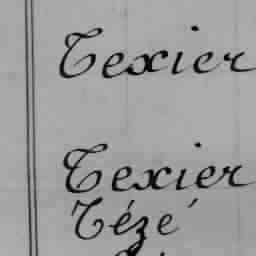 Texier
Texier
Tézé